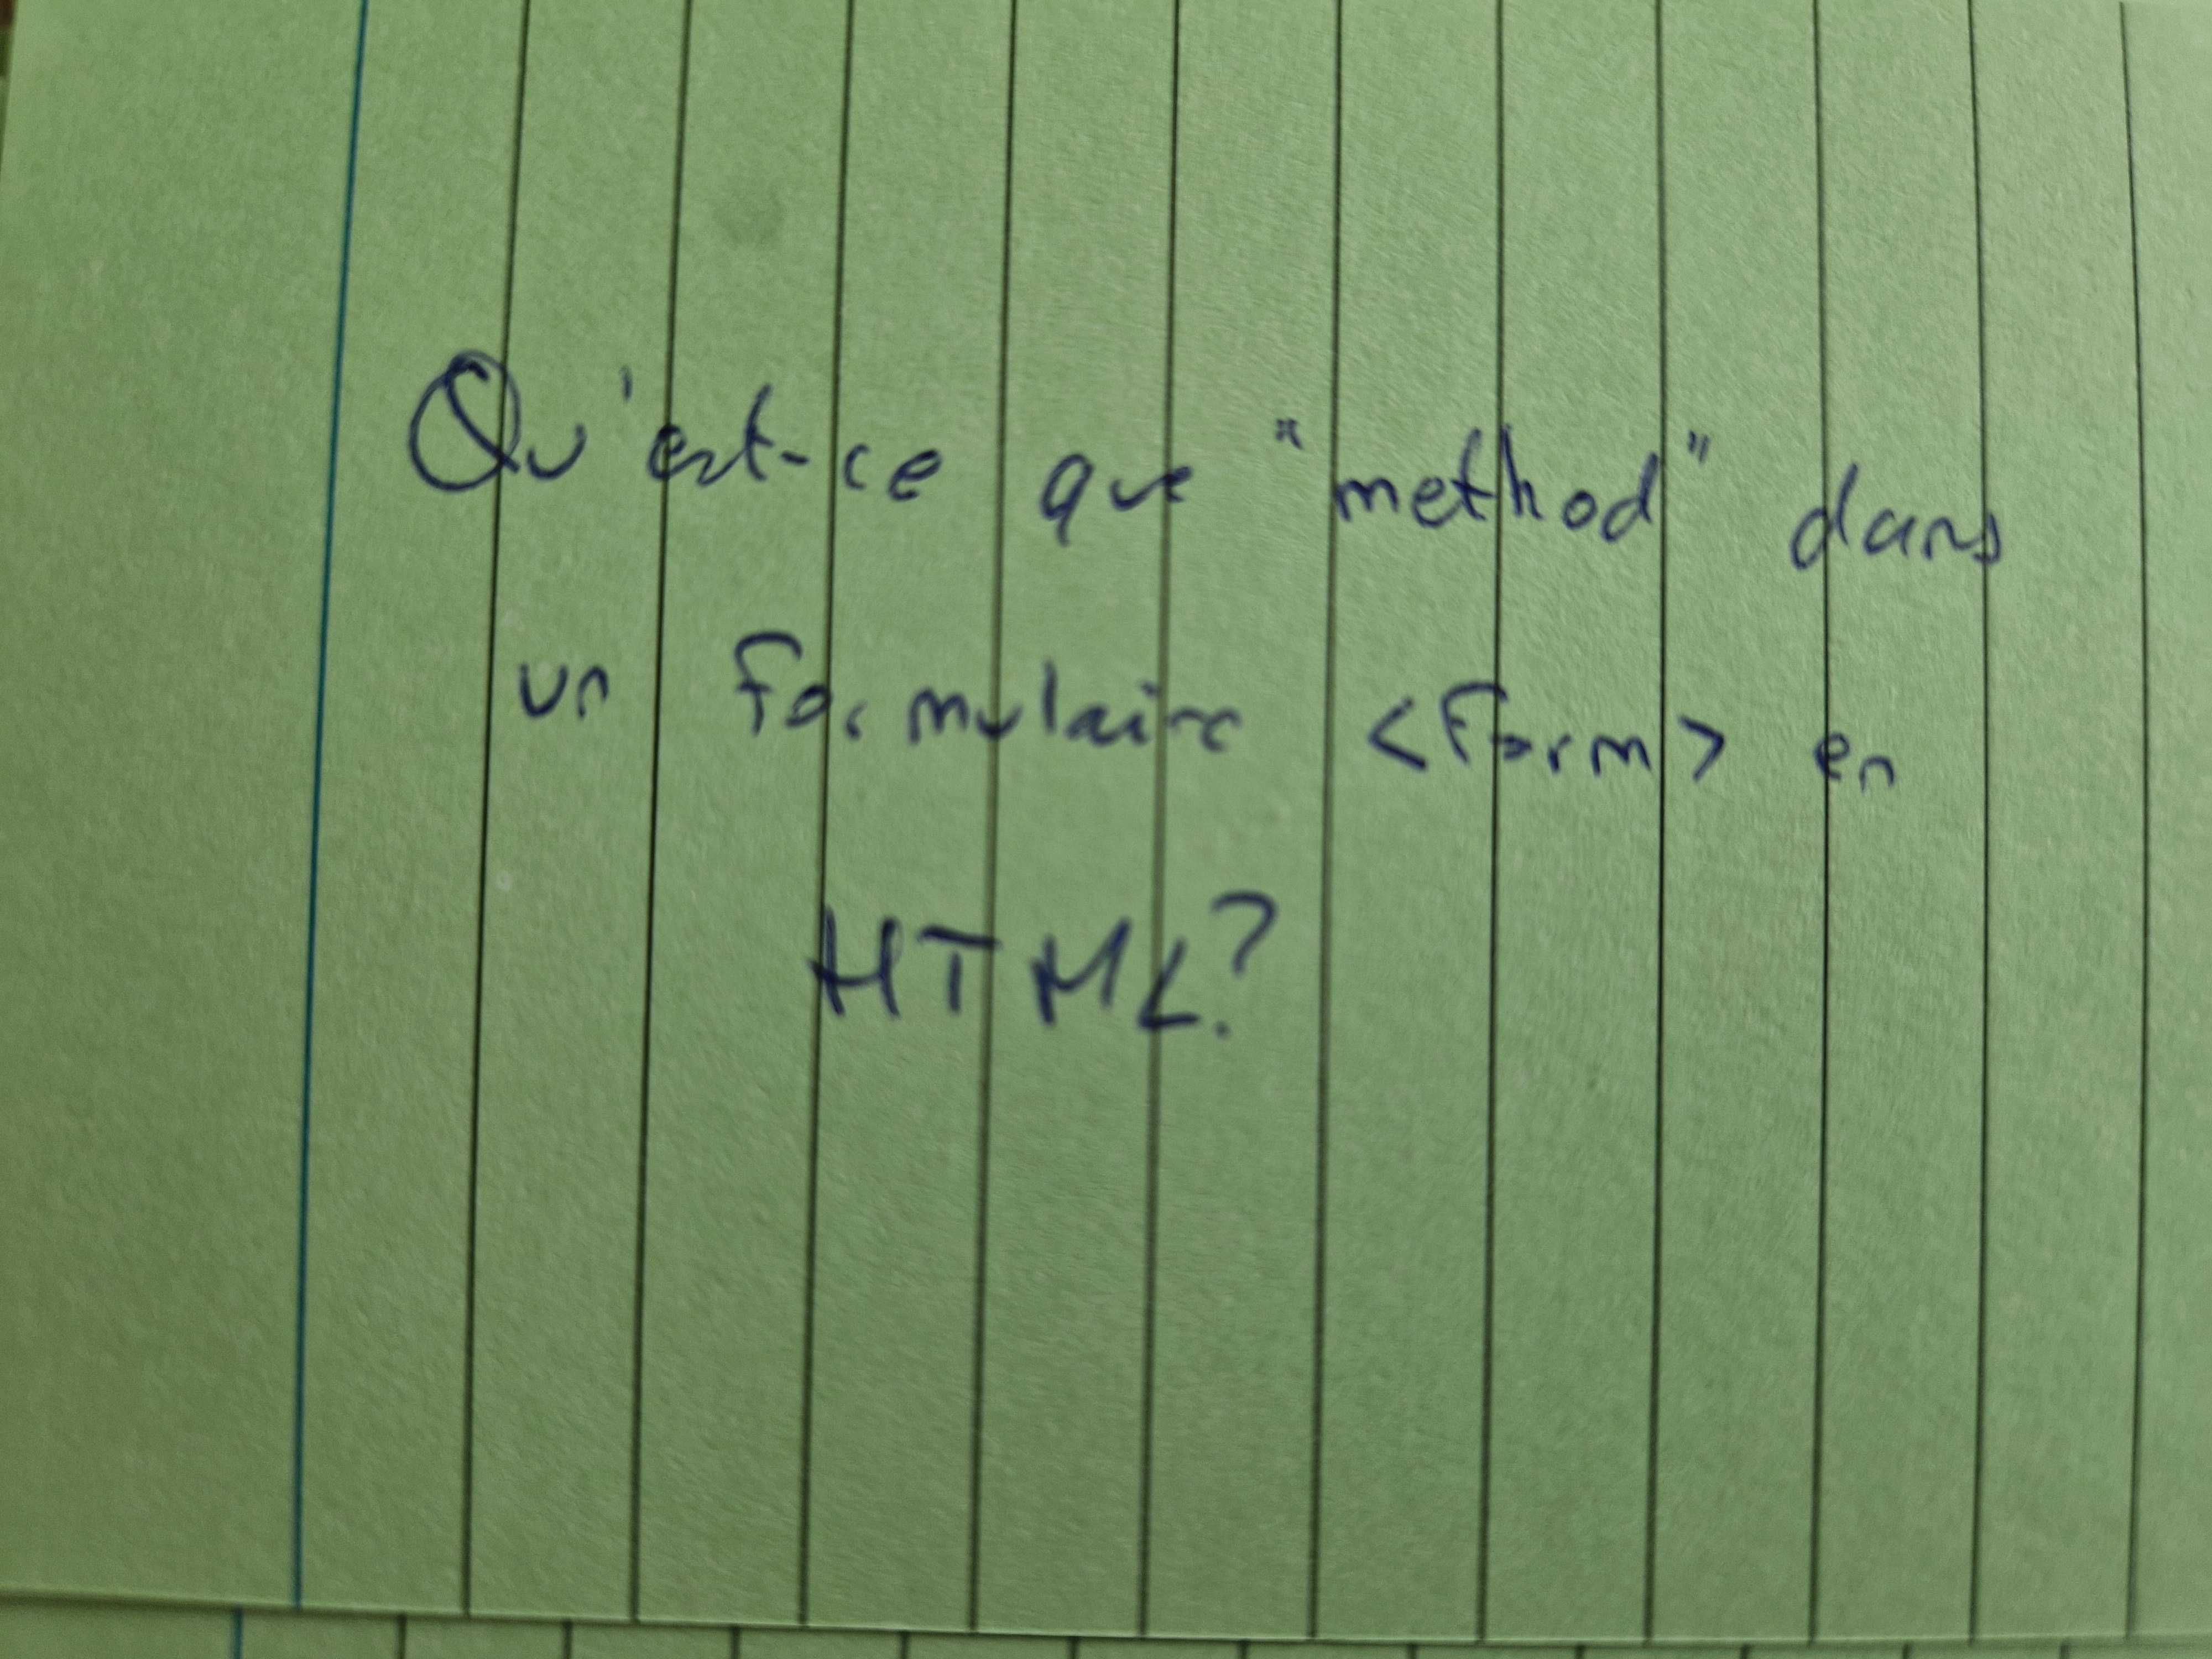 Qu'est-ce que "method" dans
un formulaire <form> en
HTML?